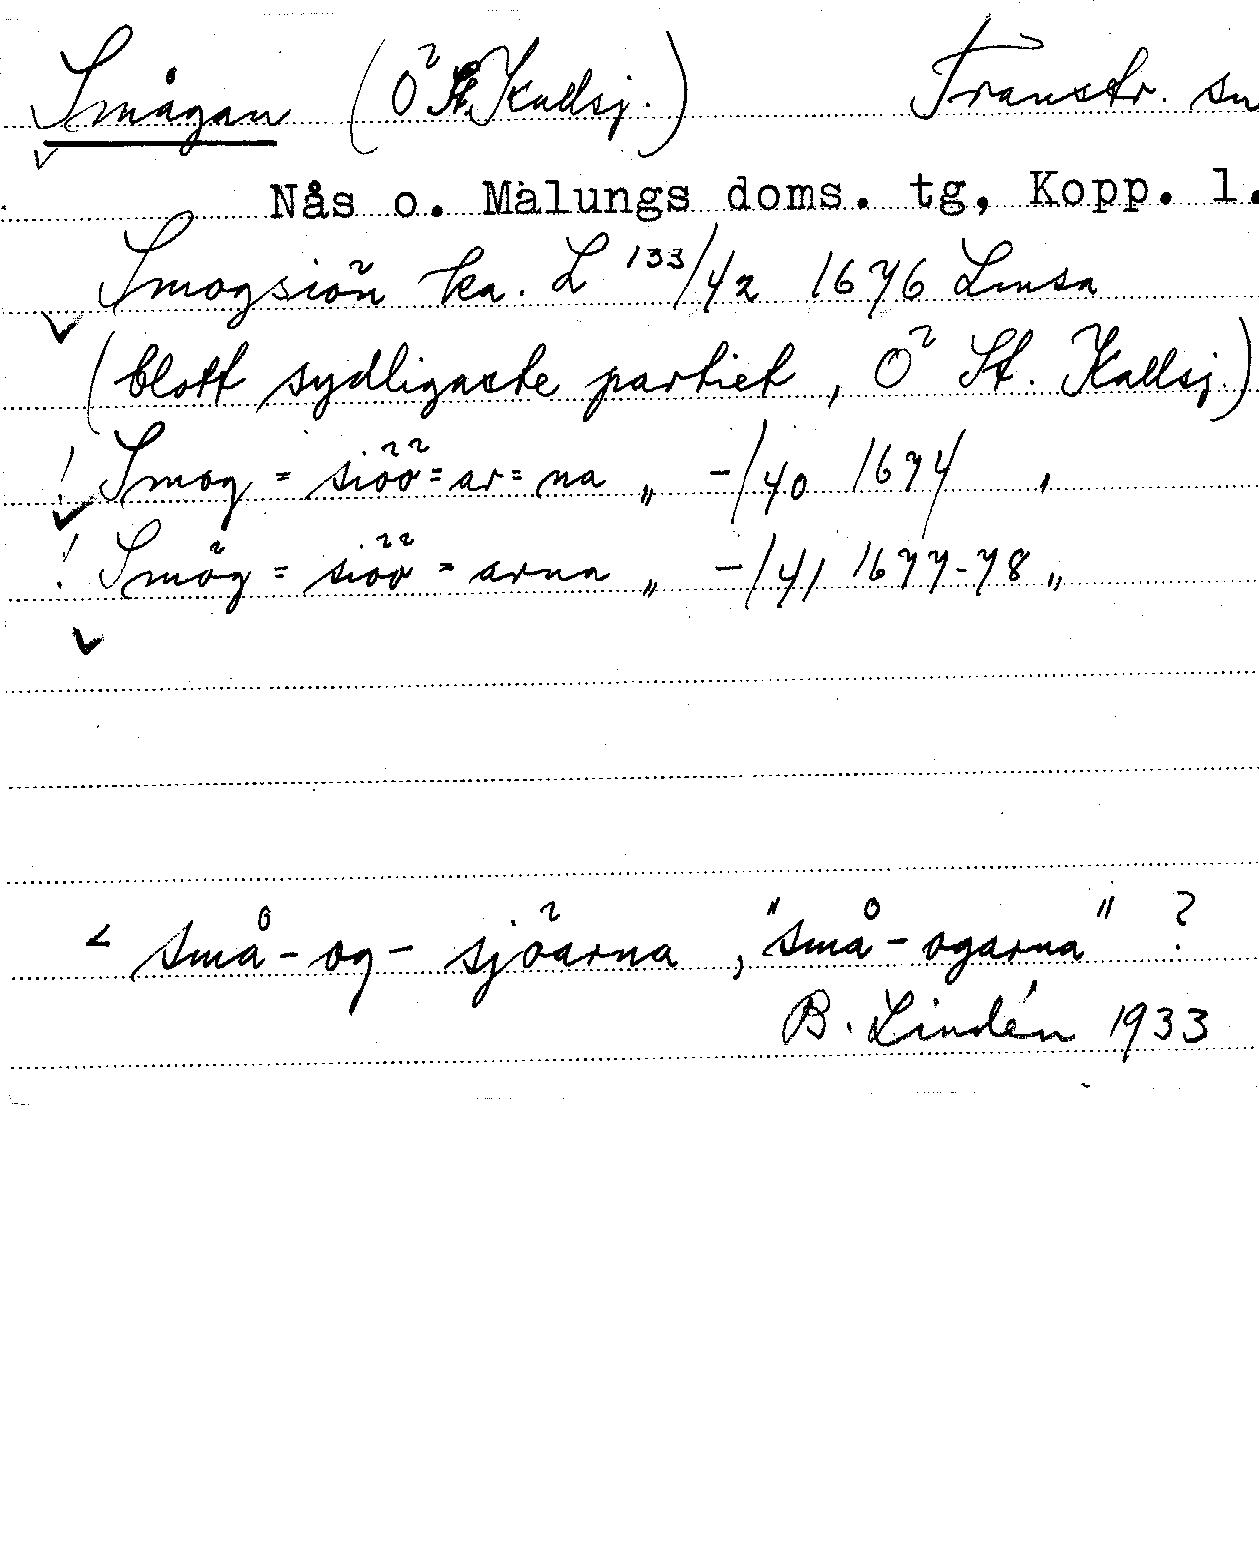 Smågan (Ö St. Kallsj.) Transtr. sn
Nås o. Malungs doms. tg, Kopp. l.
Smogsiön ka. L 133/42 1676 Lmsa
(blott sydligaste partiet, Ö St. Kallsj.)
! Smog=siöö=ar=na „ -/40 1674 „
! Smög=siöö=arna „ -/41 1677-78 „
< små-og-sjöarna, "små-ogarna" ?
B. Lindén 1933